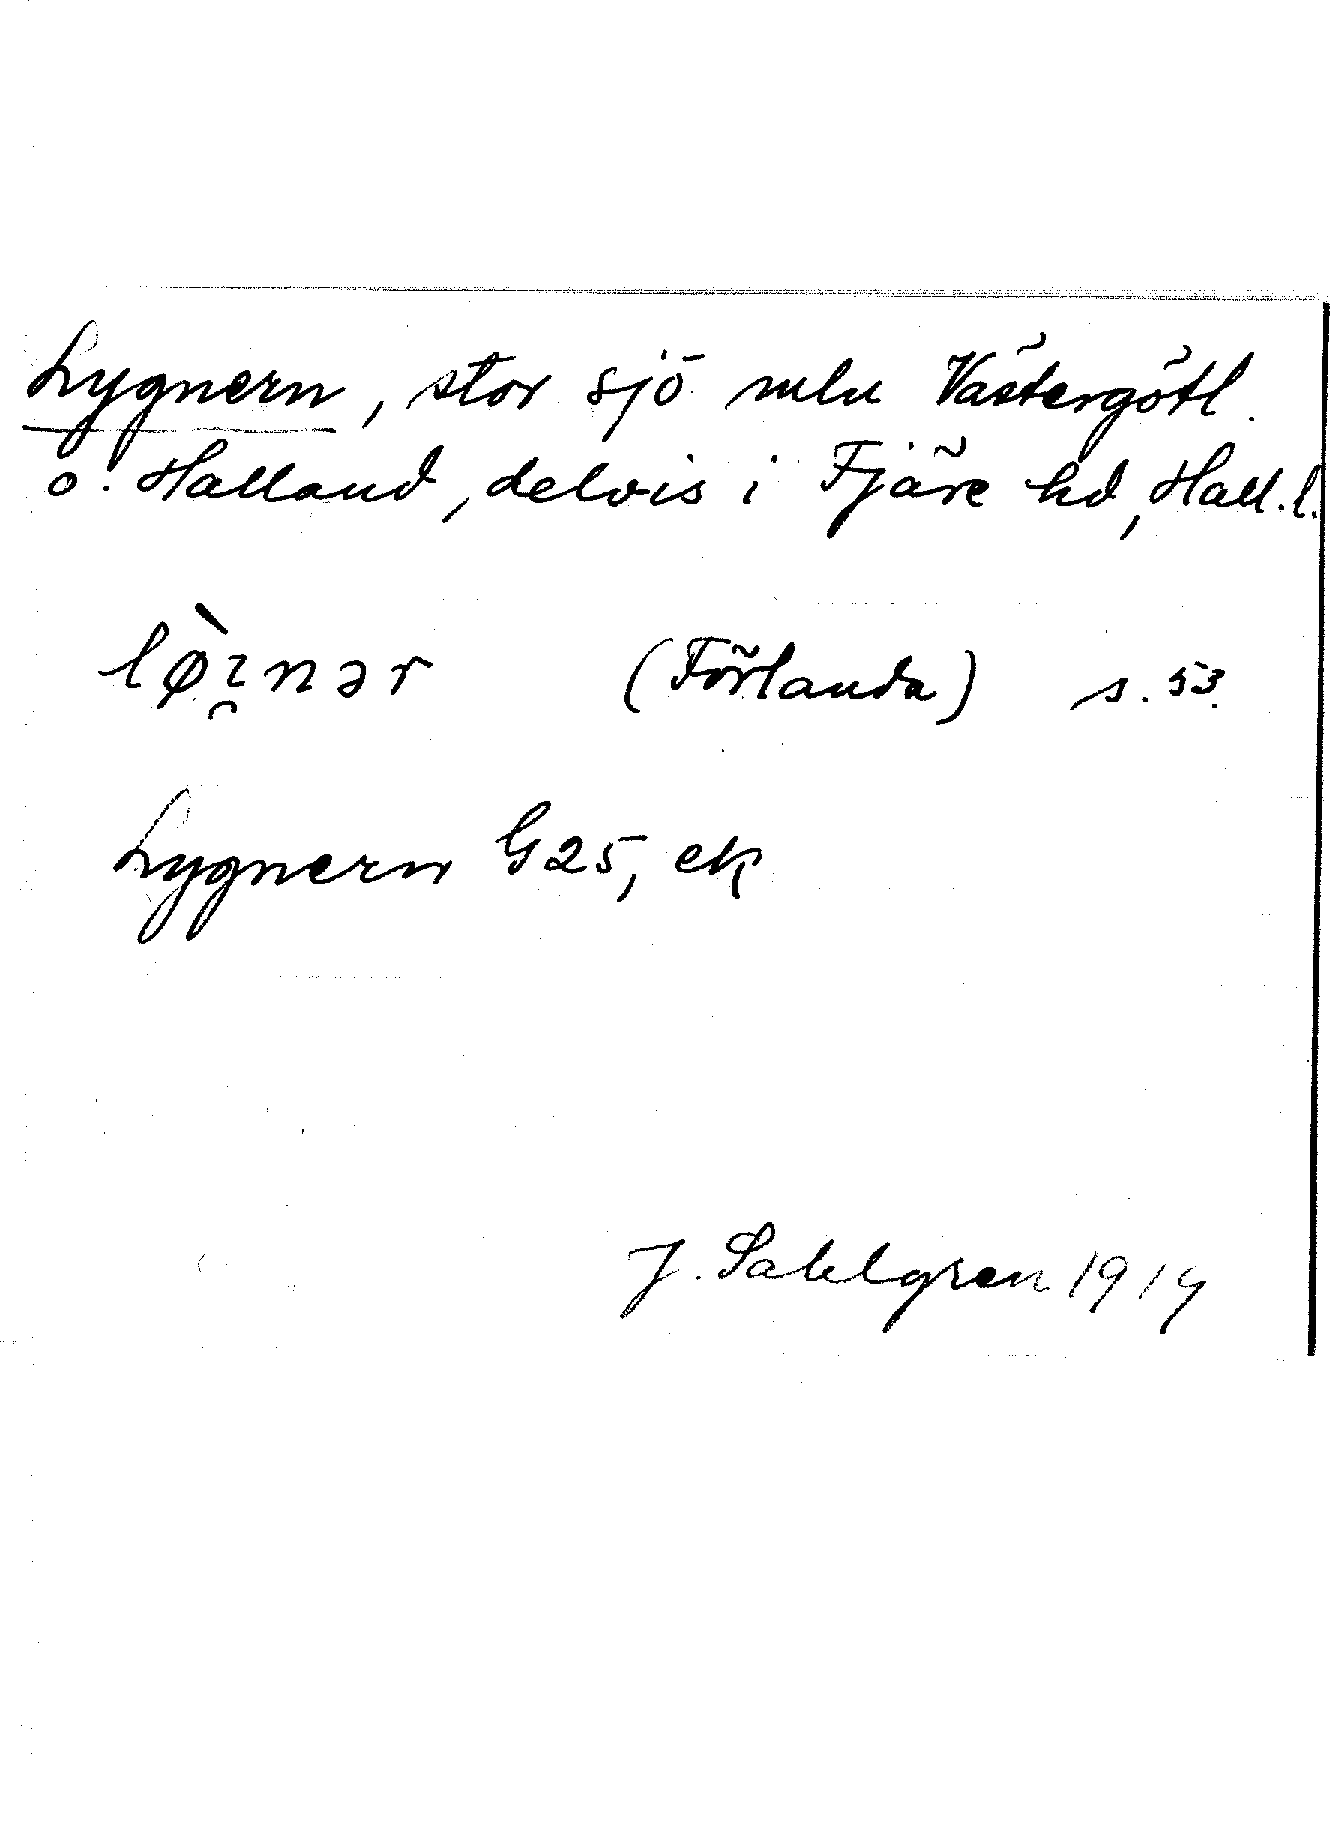 Lygnern, stor sjö mln Västergötl.
o. Halland, delvis i Fjäre hd, Hall. l.
lø̀ı̯nər (Förlanda) s. 53.
Lygnern G25, ek
J. Sahlgren 1914